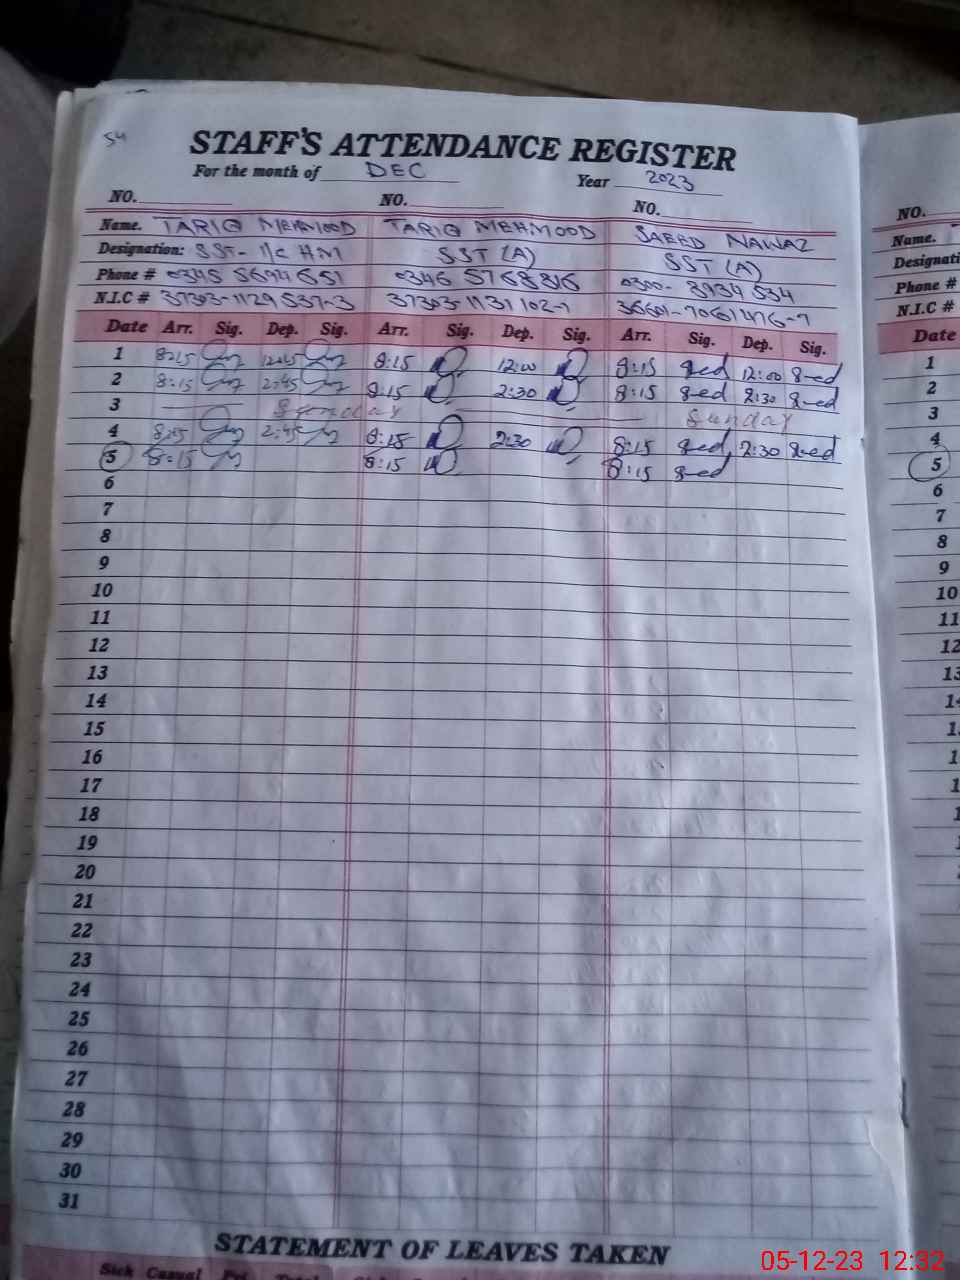 54
STAFF'S ATTENDANCE REGISTER
For the month of DEC Year 2023
NO. NO. NO. NO.
Name. TARIQ MEHMOOD TARIQ MEHMOOD SAEED NAWAZ Name.
Designation: SST- I/C HM SST (A) SST (A) Designati
Phone # 0345 5694651 0346 5768816 0300- 8934534 Phone #
N.I.C # 37303-1129537-3 37303-1131102-7 36601-7061476-7 N.I.C #
Date Arr. Sig. Dep. Sig. Arr. Sig. Dep. Sig. Arr. Sig. Dep. Sig. Date
1 8:15 12:15 8:15 12:00 8:15 12:00 1
2 8:15 2:45 8:15 2:30 8:15 2:30 2
3 Sunday Sunday 3
4 8:15 2:45 8:15 2:30 8:15 2:30 4
5 8:15 8:15 8:15 5
6 6
7 7
8 8
9 9
10 10
11 11
12 12
13 13
14
15
16
17
18
19
20
21
22
23
24
25
26
27
28
29
30
31
STATEMENT OF LEAVES TAKEN
Sick Casual
05-12-23 12:32